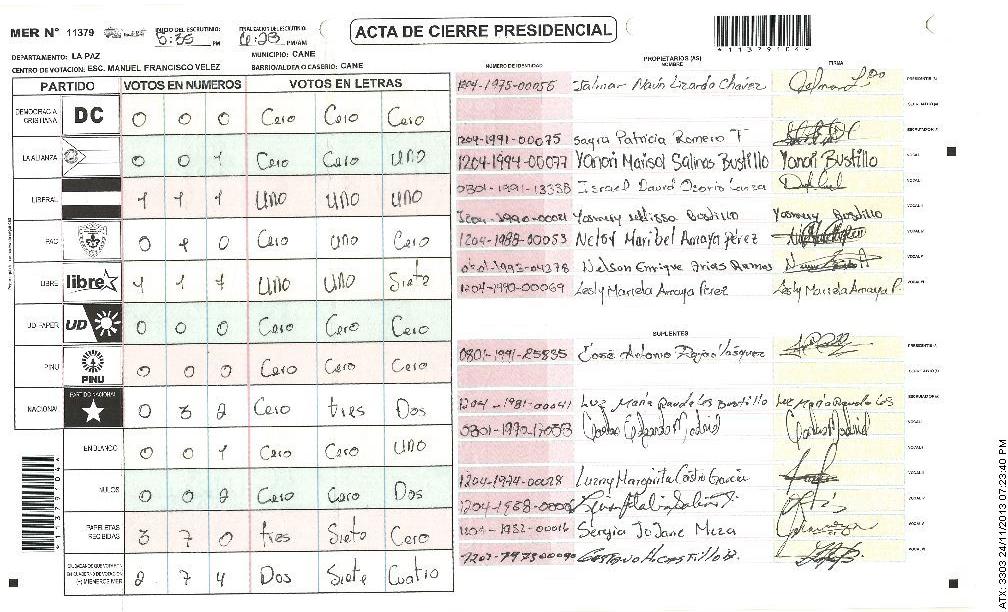 MER N° 11379 INICIO DEL ESCRUTINIO: 5:35 PM FINALIZACION DEL ESCRUTINIO: 6:23 PM/AM
ACTA DE CIERRE PRESIDENCIAL
DEPARTAMENTO: LA PAZ MUNICIPIO: CANE
CENTRO DE VOTACION: ESC. MANUEL FRANCISCO VELEZ BARRIO/ALDEA O CASERIO: CANE
PARTIDO VOTOS EN NUMEROS VOTOS EN LETRAS
DEMOCRACIA CRISTIANA DC 0 0 0 Cero Cero Cero
LA ALIANZA 0 0 1 Cero Cero uno
LIBERAL 1 1 1 uno uno uno
PAC 0 1 0 Cero uno Cero
LIBRE libre 1 1 7 uno uno Siete
UD-FAPER UD 0 0 0 Cero Cero Cero
PINU PINU 0 0 0 Cero Cero Cero
NACIONAL PARTIDO NACIONAL 0 3 2 Cero tres Dos
EN BLANCO 0 0 1 Cero Cero uno
NULOS 0 0 2 Cero Cero Dos
PAPELETAS RECIBIDAS 3 7 0 tres Siete Cero
2 7 4 Dos Siete Cuatro
PROPIETARIOS (AS)
NUMERO DE IDENTIDAD NOMBRE FIRMA
1204-1975-00056 Jalmar Naún Lizardo Chávez
1204-1991-00075 Sayra Patricia Romero T
1204-1994-00077 Yanori Marisol Salinas Bustillo Yanori Bustillo
0801-1991-13338 Israel David Osorio
1204-1990-00021 Yosmery Melissa Bustillo Yosmery Bustillo
1204-1988-00053 Nelsy Maribel Amaya Pérez
0801-1993-04378 Nelson Enrique Arias Ramos
1204-1990-00069 Lesly Mariela Amaya Perez Lesly Mariela Amaya P.
SUPLENTES
0801-1991-25535 José Antonio Rojas Vásquez
1204-1981-00041 Luz María Raudales Bustillo Luz María Raudales
0801-1972-17053 Carlos Madrid
1204-1974-00028 Margarita Castro García
1204-1958-0006
1204-1982-00016 Sergia Meza
Gustavo H. Castillo B.
1137910 4
ATX: 3303 24/11/2013 07:23:40 PM